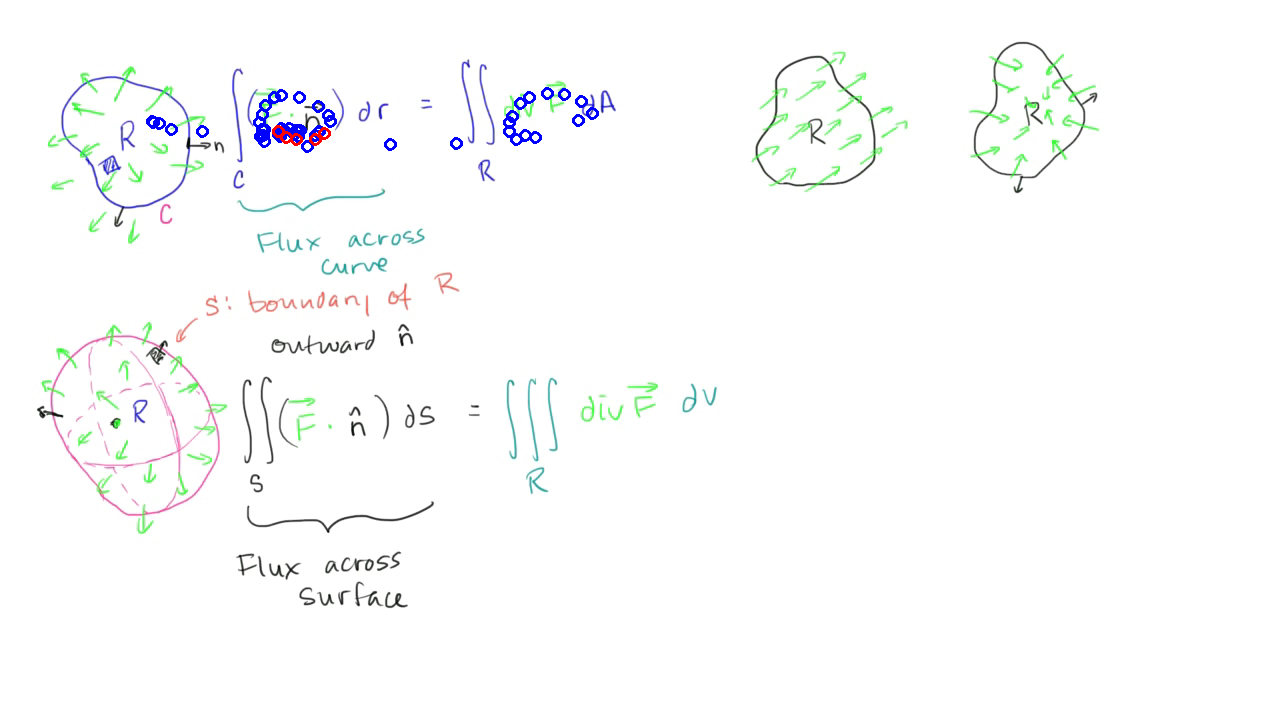 R
n
C
∫_C ( n̂ ) dr = ∬_R div F⃗ dA
R
R
Flux across
curve
S: boundary of R
outward n̂
R
∬_S (F⃗ · n̂) ds = ∭_R div F⃗ dv
Flux across
surface